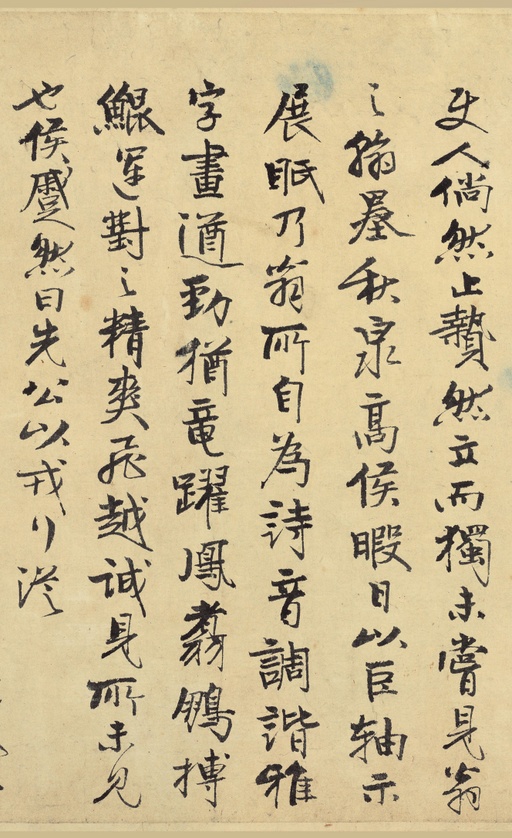 使人倘然止贄然立而獨未嘗見翁
之翰墨秋泉高侯暇日以巨軸示
展眂乃翁所自為詩音調諧雅
字畫遒勁猶竜躍鳳翥鵬摶
鯤運對之精爽飛越誠見所未見
也侯蹙然曰先公以戎